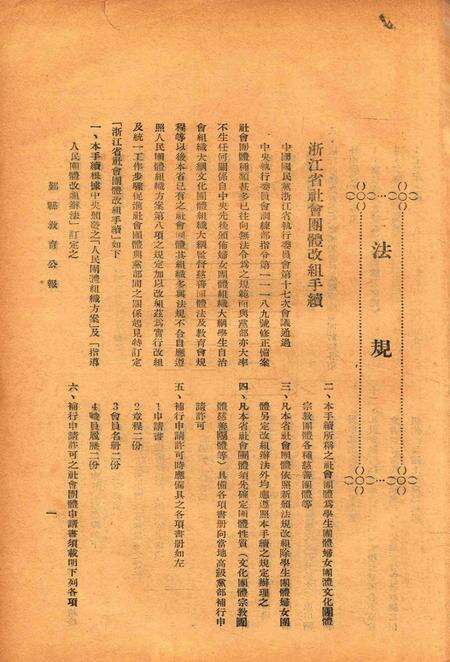 法規
浙江省社會團體改組手續
中國國民黨浙江省執行委員會第十七次會議通過
中央執行委員會訓練部指令第一二一八九號修正備案
社會團體種類甚多已往向無法令為之規範而與黨部亦大率
不生任何關係自中央先後頒佈婦女團體組織大綱學生自治
會組織大綱文化團體組織大綱監督慈善團體法及教育會規
程等以後本省已有之社會團體其組織多與法規不合自應遵
照人民團體組織方案第八項之規定加以改組茲為實行改組
及統一工作步驟促進社會團體與黨部間之關係起見特訂定
「浙江省社會團體改組手續」如下
一、本手續根據中央頒發之「人民團體組織方案」及「指導
人民團體改組辦法」訂定之
鄞縣教育公報
二、本手續所稱之社會團體為學生團體婦女團體文化團體
宗教團體各種慈善團體等
三、凡本省社會團體依照新頒法規改組除學生團體婦女團
體另定改組辦法外均應遵照本手續之規定辦理之
四、凡本省社會團體須先確定團體性質(文化團體宗教團
體慈善團體等)具備各項書冊向當地高級黨部補行申
請許可
五、補行申請許可時應備具之各項書冊如左
1申請書
2章程二份
3會員名冊二份
4職員履歷二份
六、補行申請許可之社會團體申請書須載明下列各項
一